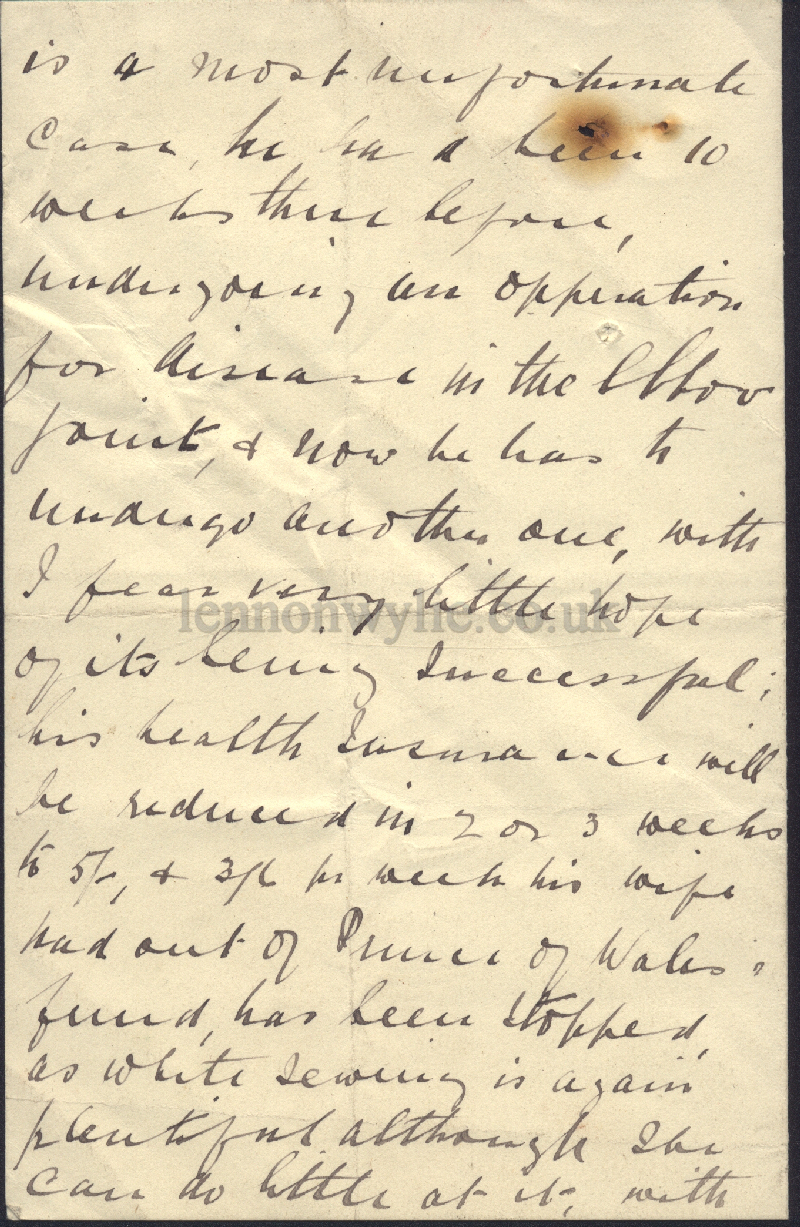 is a most unfortunate
case, he had been 10
weeks there before,
undergoing an opperation
for disease in the Elbow
joint, & now he has to
undergo another one, with
I fear very little hope
of its being successful;
his health Insurance will
be reduced in 2 or 3 weeks
to 5/-, & 3/6 per week his wife
had out of Prince of Wales'
fund, has been stopped,
as white sewing is again
plentiful although she
can do little at it, with
lennonwylie.co.uk